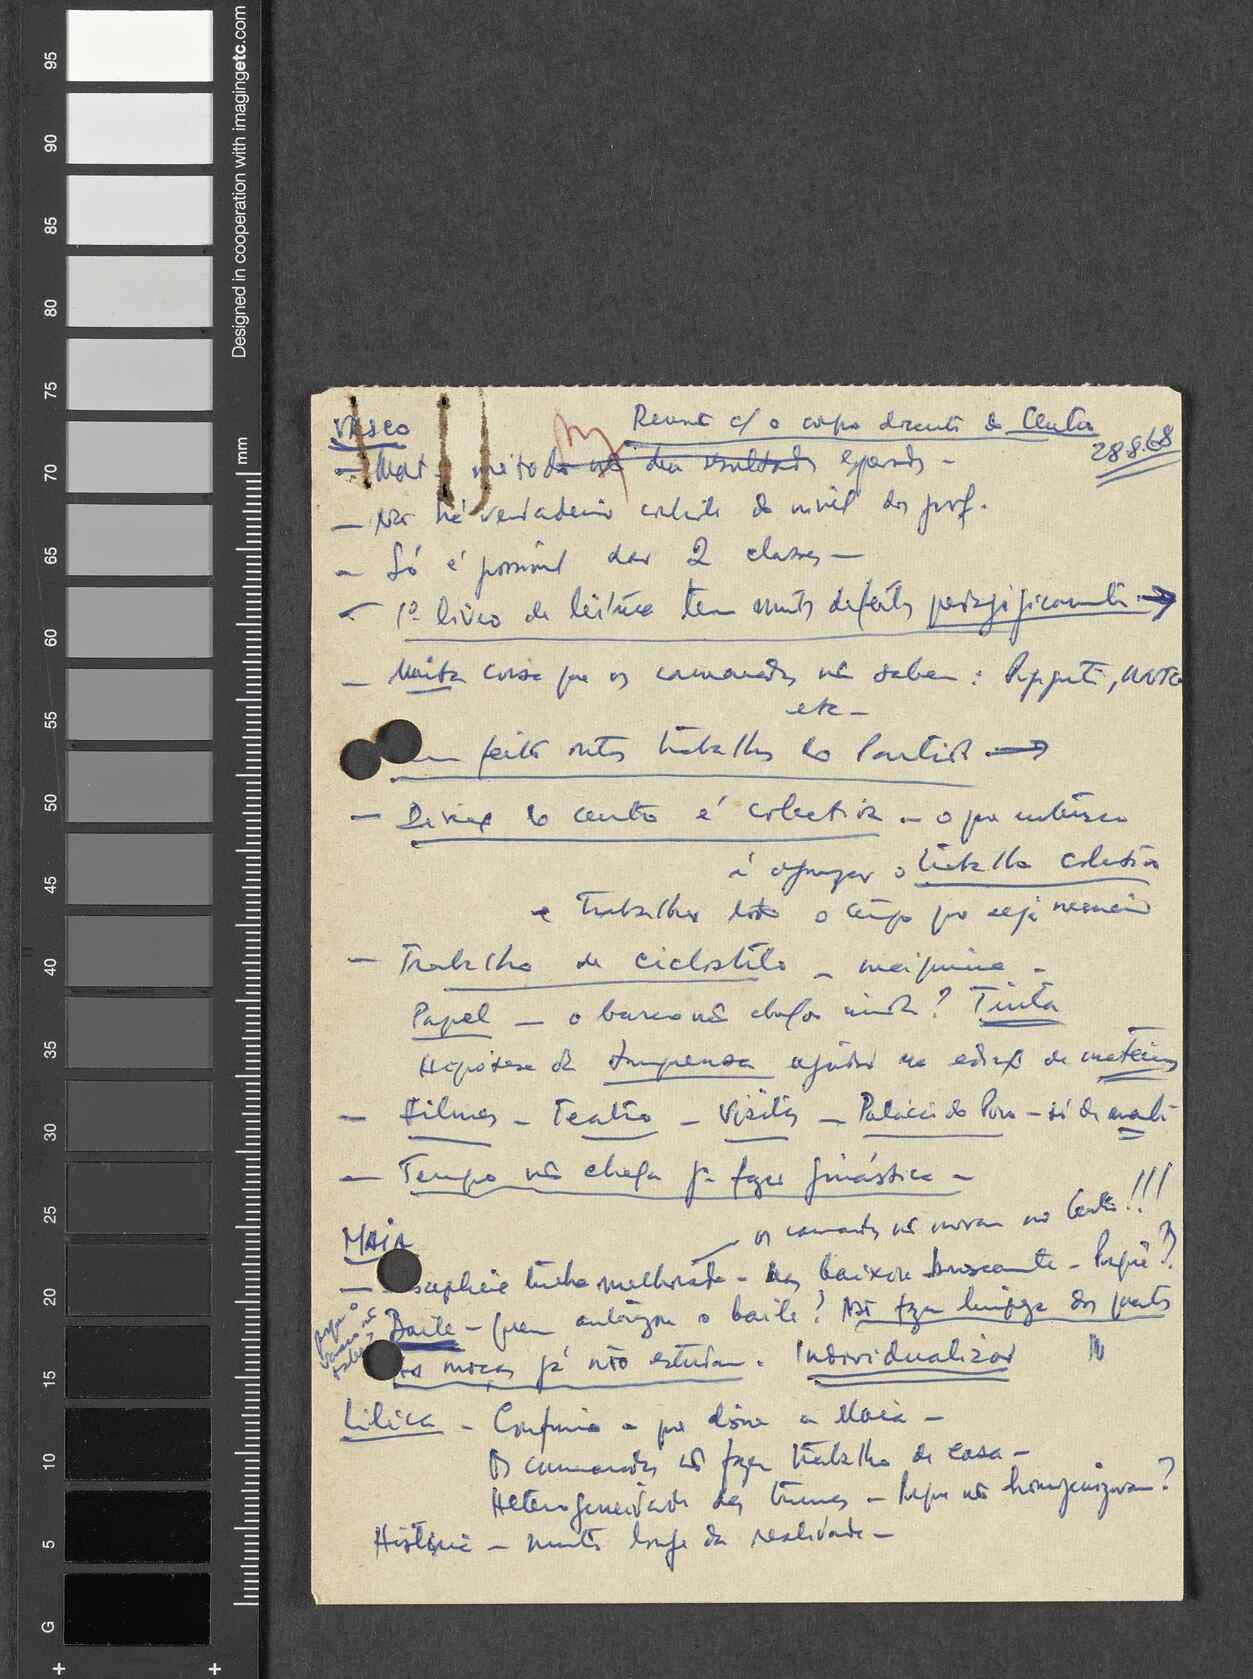 95
90
85
80
75
70
65
60
55
50
45
40
35
30
25
20
15
10
5
G
Designed in cooperation with imagingetc.com
mm
Reunião c/ o corpo docente do Centro
28.8.68
VASCO
método não deu resultados esperados –
– Não há verdadeiro controle do nível dos prof.
– Só é possível dar 2 classes –
– 1º livro de leitura tem muitos defeitos →
– Muita coisa que os camaradas não sabem :
etc –
feito outros trabalhos do Partido →
– Direcção do Centro é colectiva – o que
é o trabalho colectivo
e trabalhar todo o tempo que seja necessário
– Trabalho de ciclostilo – máquina –
Papel – o barco não chegou ainda? Tinta
Hipótese da Imprensa ajudar na edição de matérias
– Filmes – Teatro – Visitas – Palácio do Povo –
– Tempo não chega p. fazer ginástica –
MAIA
os camaradas não moram no Centro!!!
– tinha melhorado – mas baixou bruscamente – Porquê?
Baile – quem autorizou o baile? Não fazem limpeza dos quartos
As moças já não estudam. Individualizar
Lilica – Confirma o que disse a Maia –
Os camaradas não fazem trabalho de casa –
Heterogeneidade das turmas – Porque não homogenizaram?
História – muito longe da realidade –